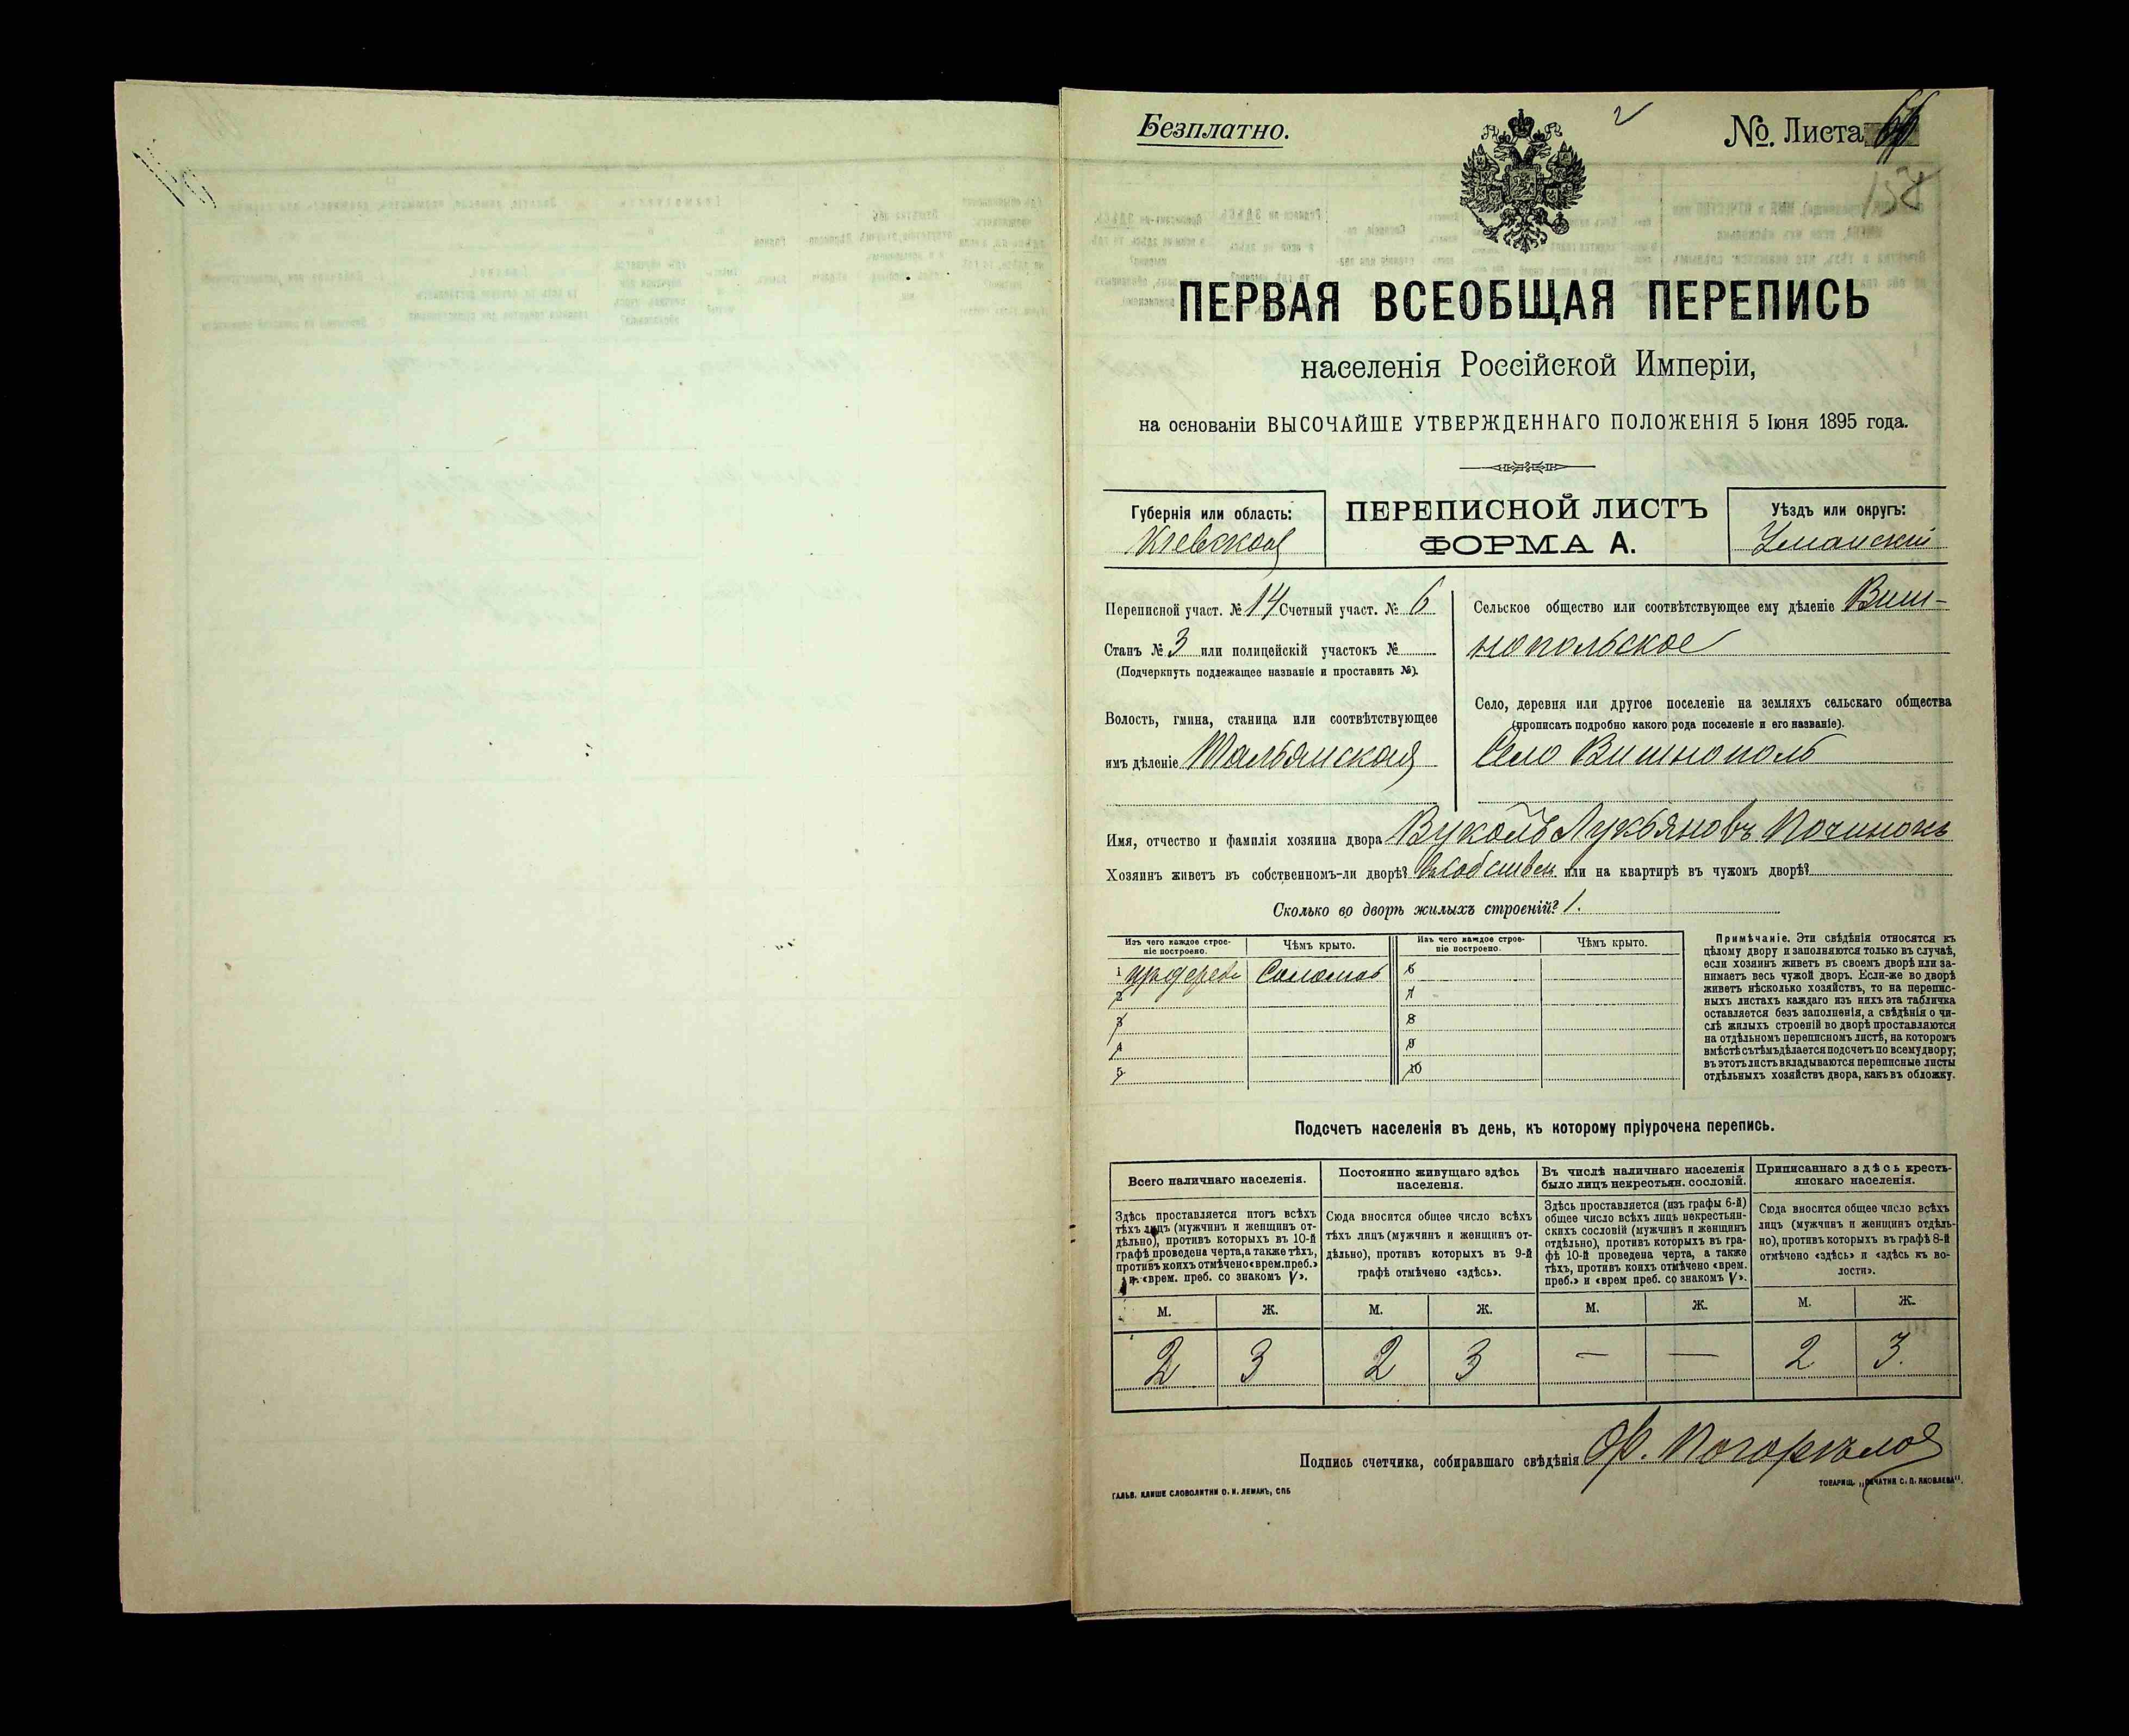 Безплатно.
№. Листа 66
ПЕРВАЯ ВСЕОБЩАЯ ПЕРЕПИСЬ
населенія Россійской Имперіи,
на основаніи ВЫСОЧАЙШЕ УТВЕРЖДЕННАГО ПОЛОЖЕНІЯ 5 Іюня 1895 года.
Губернія или область:
Кіевская
ПЕРЕПИСНОЙ ЛИСТЪ
ФОРМА А.
Уѣздъ или округъ:
Уманскій
Переписной участ. № 14 Счетный участ. № 6
Станъ № 3 или полицейскій участокъ №
(Подчеркнуть подлежащее названіе и проставить №).
Волость, гмина, станица или соотвѣтствующее
имъ дѣленіе Тальянская
Сельское общество или соотвѣтствующее ему дѣленіе Виш-
нопольское
Село, деревня или другое поселеніе на земляхъ сельскаго общества
(прописать подробно какого рода поселеніе и его названіе).
Село Вишнополь
Имя, отчество и фамилія хозяина двора Вуколъ Лукьяновъ Починокъ
Хозяинъ живетъ въ собственномъ-ли дворѣ? Въ собствен или на квартирѣ въ чужомъ дворѣ?
Сколько во дворѣ жилыхъ строеній? 1.
Изъ чего каждое строе-
ніе построено.
Чѣмъ крыто.
Изъ чего каждое строе-
ніе построено.
Чѣмъ крыто.
1 Соломою
2
3
4
5
6
7
8
9
10
Примѣчаніе. Эти свѣдѣнія относятся къ
цѣлому двору и заполняются только въ случаѣ,
если хозяинъ живетъ въ своемъ дворѣ или за-
нимаетъ весь чужой дворъ. Если-же во дворѣ
живетъ нѣсколько хозяйствъ, то на перепис-
ныхъ листахъ каждаго изъ нихъ эта табличка
оставляется безъ заполненія, а свѣдѣнія о чи-
слѣ жилыхъ строеній во дворѣ проставляются
на отдѣльномъ переписномъ листѣ, на которомъ
вмѣстѣ съ тѣмъ дѣлается подсчетъ по всему двору;
въ этотъ листъ вкладываются переписные листы
отдѣльныхъ хозяйствъ двора, какъ въ обложку.
Подсчетъ населенія въ день, къ которому пріурочена перепись.
Всего наличнаго населенія.
Здѣсь проставляется итогъ всѣхъ
тѣхъ лицъ (мужчинъ и женщинъ от-
дѣльно), противъ которыхъ въ 10-й
графѣ проведена черта, а также тѣхъ,
противъ коихъ отмѣчено «врем. преб.»
и «врем. преб. со знакомъ V».
Постоянно живущаго здѣсь
населенія.
Сюда вносится общее число всѣхъ
тѣхъ лицъ (мужчинъ и женщинъ от-
дѣльно), противъ которыхъ въ 9-й
графѣ отмѣчено «здѣсь».
Въ числѣ наличнаго населенія
было лицъ некрестьян. сословій.
Здѣсь проставляется (изъ графы 6-й)
общее число всѣхъ лицъ некрестьян-
скихъ сословій (мужчинъ и женщинъ
отдѣльно), противъ которыхъ въ гра-
фѣ 10-й проведена черта, а также
тѣхъ, противъ коихъ отмѣчено «врем.
преб.» и «врем преб. со знакомъ V».
Приписаннаго здѣсь кресть-
янскаго населенія.
Сюда вносится общее число всѣхъ
лицъ (мужчинъ и женщинъ отдѣль-
но), противъ которыхъ въ графѣ 8-й
отмѣчено «здѣсь» и «здѣсь къ во-
лости».
М. Ж. М. Ж. М. Ж. М. Ж.
2 3 2 3 — — 2 3.
Подпись счетчика, собиравшаго свѣдѣнія
ГАЛЬВ. КЛИШЕ СЛОВОЛИТНИ О. И. ЛЕМАНЪ, СПБ
ТОВАРИЩ. „ПЕЧАТНЯ С. П. ЯКОВЛЕВА".